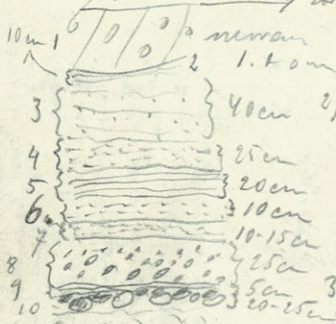 10cm 1
2
3 40cm
4 25cm
5 20cm
6. 10cm
7 10-15cm
8 25cm
9 5cm
10 20-25cm